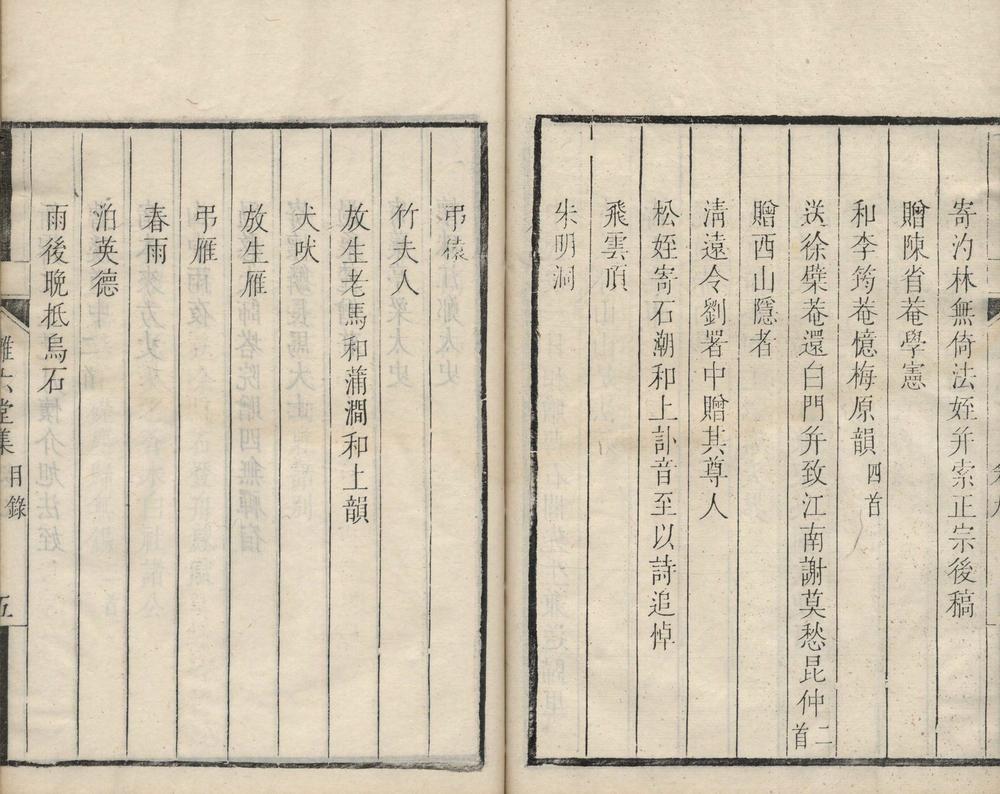 寄汋林無倚法姪幷索正宗後稿
贈陳省菴學憲
和李筠菴憶梅原韻四首
送徐檗菴還白門幷致江南謝莫愁昆仲二首
贈西山隱者
淸遠令劉署中贈其尊人
松姪寄石潮和上訃音至以詩追悼
飛雲頂
朱明洞
弔猿
竹夫人
放生老馬和蒲澗和上韻
犬吠
放生雁
弔雁
春雨
泊英德
雨後晚抵烏石
離六堂集 目錄 五